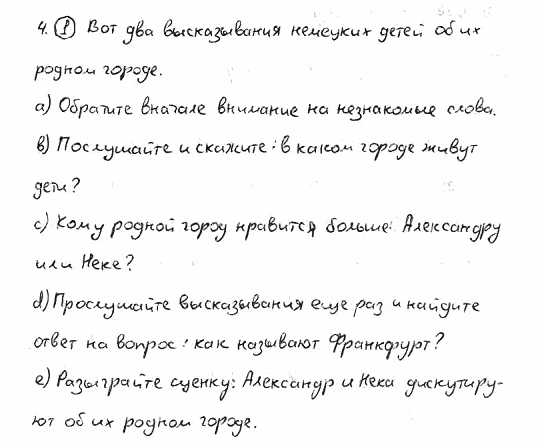 4. ① Вот два высказывания немецких детей об их
родном городе.
a) Обратите вначале внимание на незнакомые слова.
b) Послушайте и скажите: в каком городе живут
дети?
c) Кому родной город нравится больше: Александру
или Неке?
d) Прослушайте высказывания еще раз и найдите
ответ на вопрос: как называют Франкфурт?
e) Разыграйте сценку: Александр и Нека дискутиру-
ют об их родном городе.